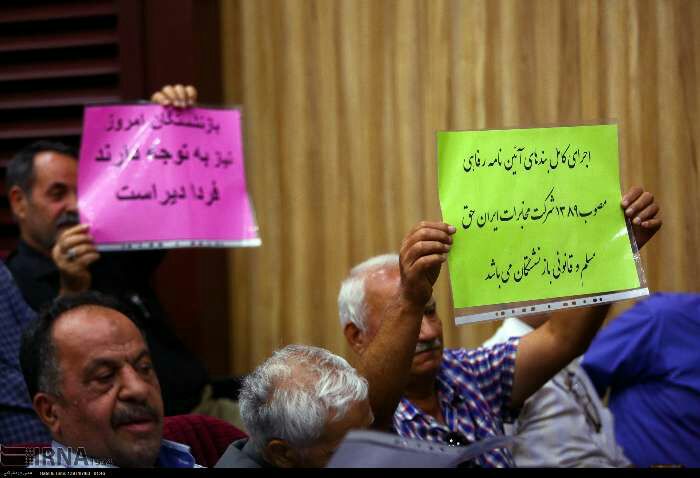 بازنشستگان امروز
نیاز به توجه دارند
فردا دیر است
اجرای کامل بندهای آئین نامه رفاهی
مصوب ۱۳۸۹ شرکت مخابرات ایران حق
مسلم و قانونی بازنشستگان می باشد
IRNA